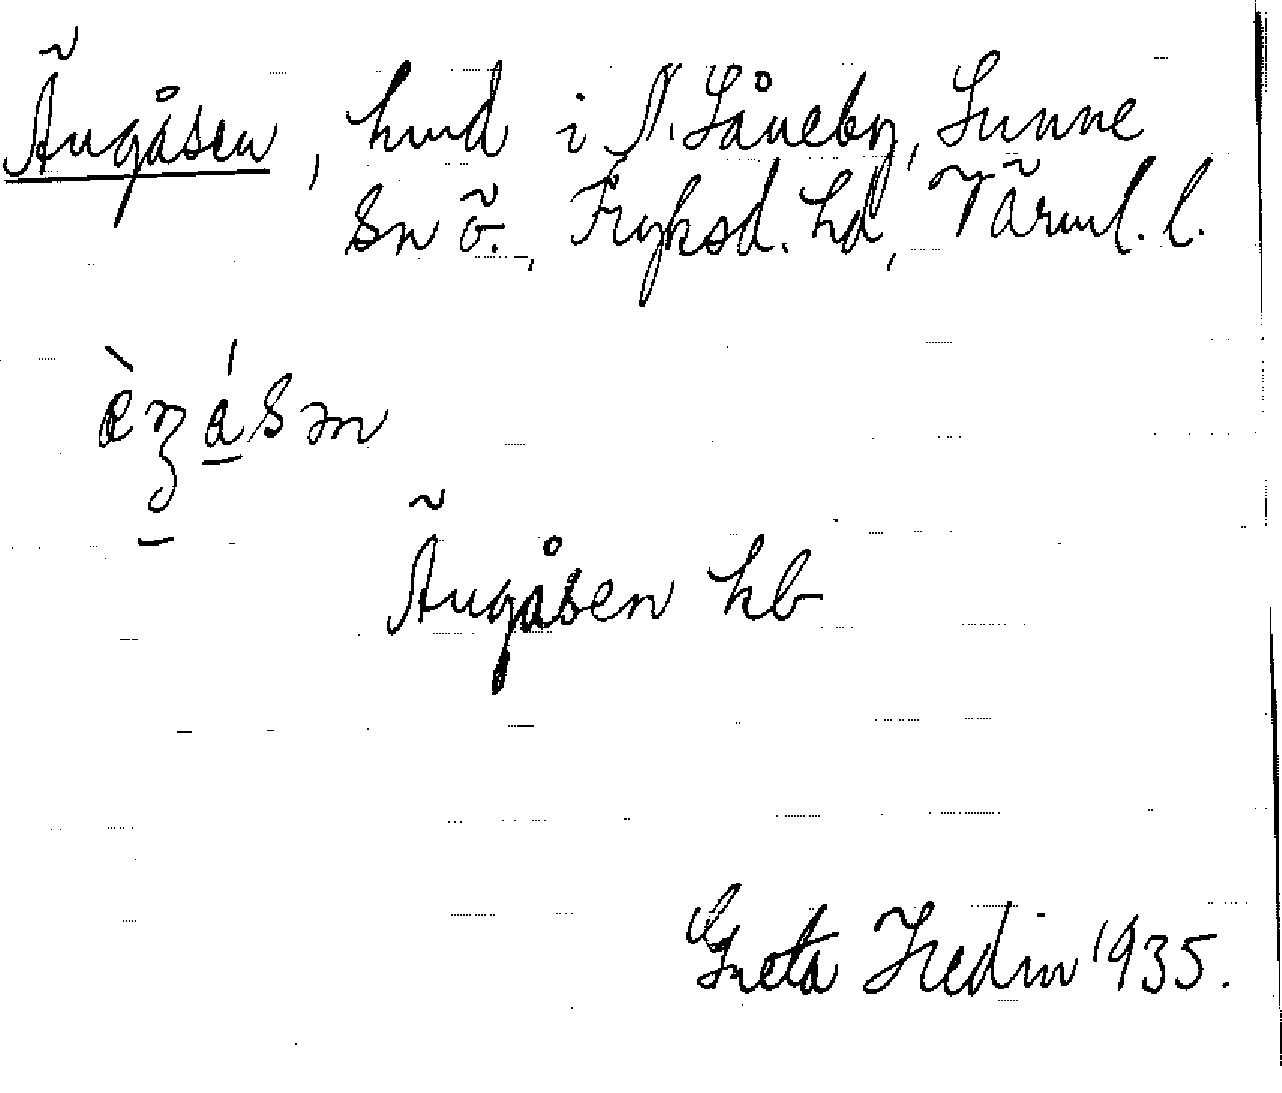 Ängåsen, hmd i N. Såneby, Sunne
Sn ö., Fryksd. hd, Värml. l.
Ängåsen hb
Greta Hedin 1935.